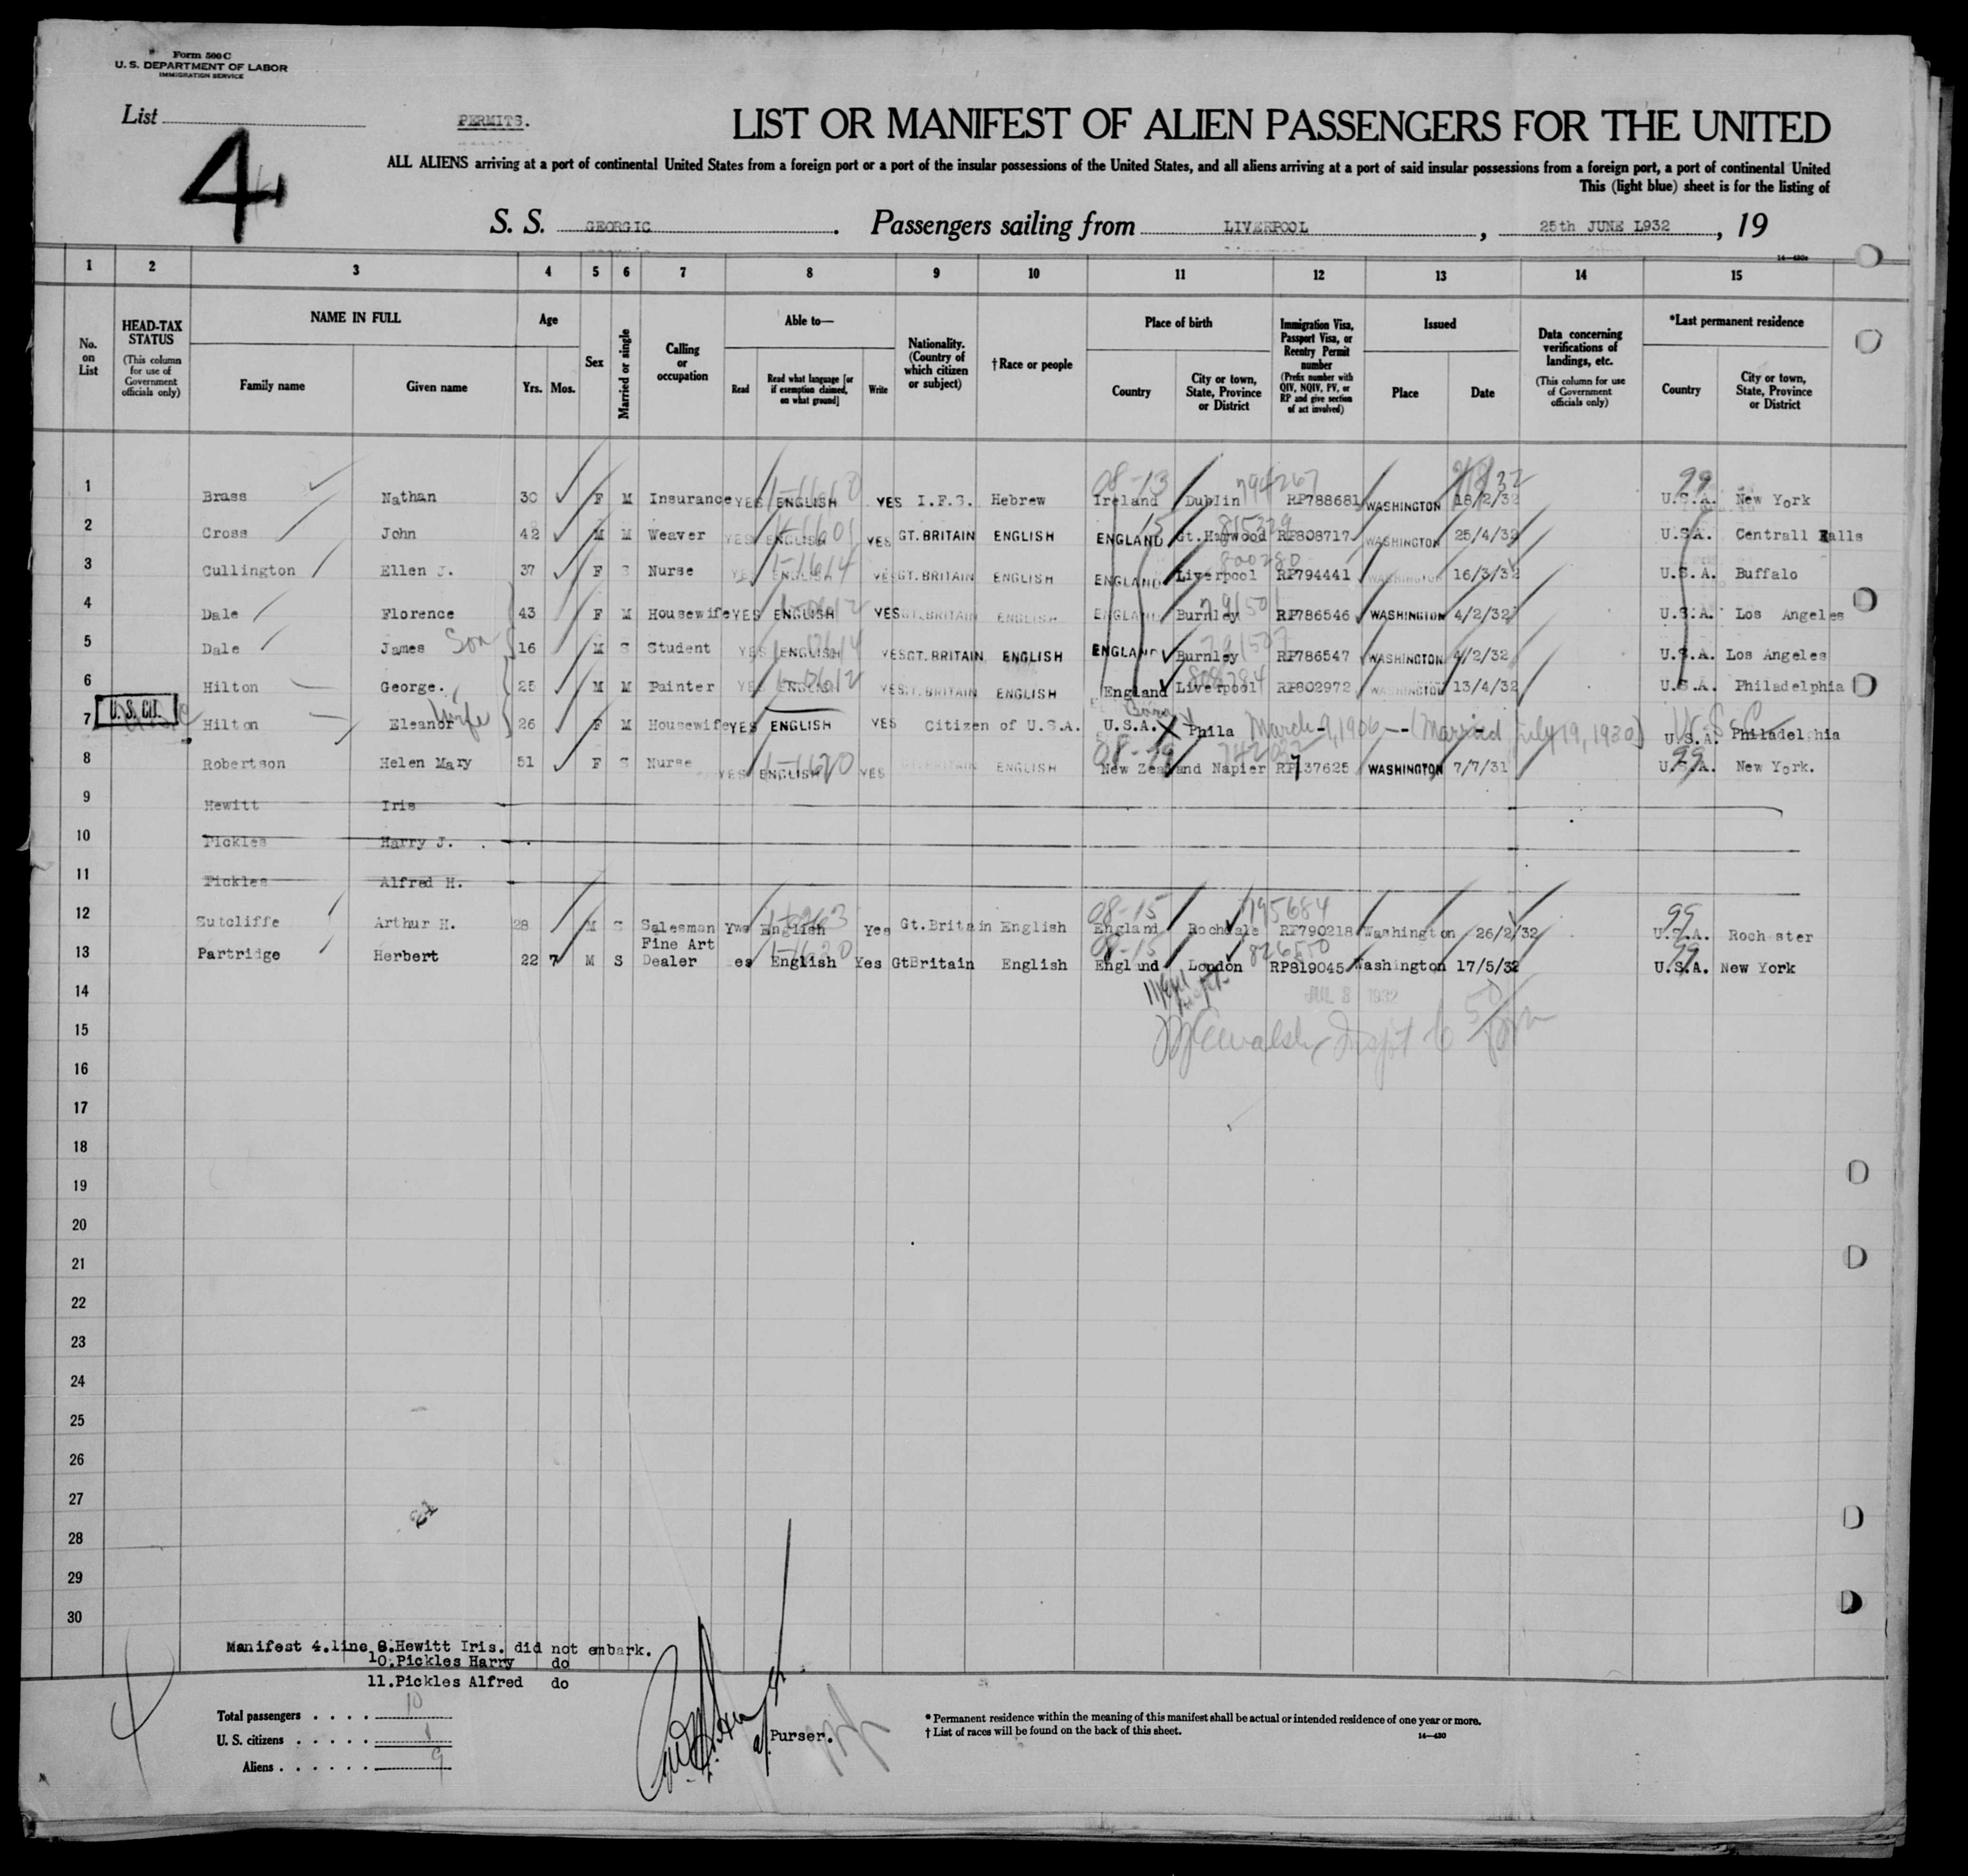 Form 500 C
U. S. DEPARTMENT OF LABOR
IMMIGRATION SERVICE
List
4
PERMITS.
LIST OR MANIFEST OF ALIEN PASSENGERS FOR THE UNITED
ALL ALIENS arriving at a port of continental United States from a foreign port or a port of the insular possessions of the United States, and all aliens arriving at a port of said insular possessions from a foreign port, a port of continental United
This (light blue) sheet is for the listing of
S. S. GEORGIC. Passengers sailing from LIVERPOOL, 25th JUNE L932, 19
14—430a
1 2 3 4 5 6 7 8 9 10 11 12 13 14 15
No. on List
HEAD-TAX STATUS
(This column for use of Government officials only)
NAME IN FULL
Family name Given name
Age
Yrs. Mos.
Sex
Married or single
Calling or occupation
Able to—
Read Read what language [or if exemption claimed, on what ground] Write
Nationality. (Country of which citizen or subject)
† Race or people
Place of birth
Country City or town, State, Province or District
Immigration Visa, Passport Visa, or Reentry Permit number
(Prefix number with QIV, NQIV, PV, or RP and give section of act involved)
Issued
Place Date
Data concerning verifications of landings, etc.
(This column for use of Government officials only)
*Last permanent residence
Country City or town, State, Province or District
08-13 794267 99
1 Brass Nathan 30 F M Insurance YES ENGLISH YES I.F.S. Hebrew Ireland Dublin RP788681 WASHINGTON 18/2/32 U.S.A. New York
15 815329
2 Cross John 42 M M Weaver YES ENGLISH YES GT. BRITAIN ENGLISH ENGLAND Gt. Harwood RP808717 WASHINGTON 25/4/32 U.S.A. Centrall Falls
800280
3 Cullington Ellen J. 37 F S Nurse YES ENGLISH YES GT. BRITAIN ENGLISH ENGLAND Liverpool RP794441 WASHINGTON 16/3/32 U.S.A. Buffalo
4 Dale Florence 43 F M Housewife YES ENGLISH YES GT. BRITAIN ENGLISH ENGLAND Burnley RP786546 WASHINGTON 4/2/32 U.S.A. Los Angeles
5 Dale James Son 16 M S Student YES ENGLISH YES GT. BRITAIN ENGLISH ENGLAND Burnley RP786547 WASHINGTON 4/2/32 U.S.A. Los Angeles
6 Hilton George. 25 M M Painter YES ENGLISH YES GT. BRITAIN ENGLISH England Liverpool RP802972 WASHINGTON 13/4/32 U.S.A. Philadelphia
U. S. CIT.
7 Hilton Eleanor Wife 26 F M Housewife YES ENGLISH YES Citizen of U.S.A. Born U.S.A. Phila March-9, 1906 -- (Married July 19, 1930) U.S.A. Philadelphia
8 Robertson Helen Mary 51 F S Nurse YES ENGLISH YES GT. BRITAIN ENGLISH New Zealand Napier RP737625 WASHINGTON 7/7/31 U.S.A. New York.
9 Hewitt Iris
10 Pickles Harry J.
11 Pickles Alfred H.
08-15 795684 99
12 Sutcliffe Arthur H. 28 M S Salesman Yws English Yes Gt.Britain English England Rochdale RP790218 Washington 26/2/32 U.S.A. Rochester
08-15 826550 99
13 Partridge Herbert 22 7 M S Fine Art Dealer es English Yes GtBritain English England London RP819045 Washington 17/5/32 U.S.A. New York
14 JUL 3 1932
15
16
17
18
19
20
21
22
23
24
25
26
27
28
29
30
Manifest 4.line 9.Hewitt Iris. did not embark.
10.Pickles Harry do
11.Pickles Alfred do
4
Total passengers . . . . 10
U. S. citizens . . . . . 1
Aliens . . . . . . 9
Purser.
* Permanent residence within the meaning of this manifest shall be actual or intended residence of one year or more.
† List of races will be found on the back of this sheet.
14—430